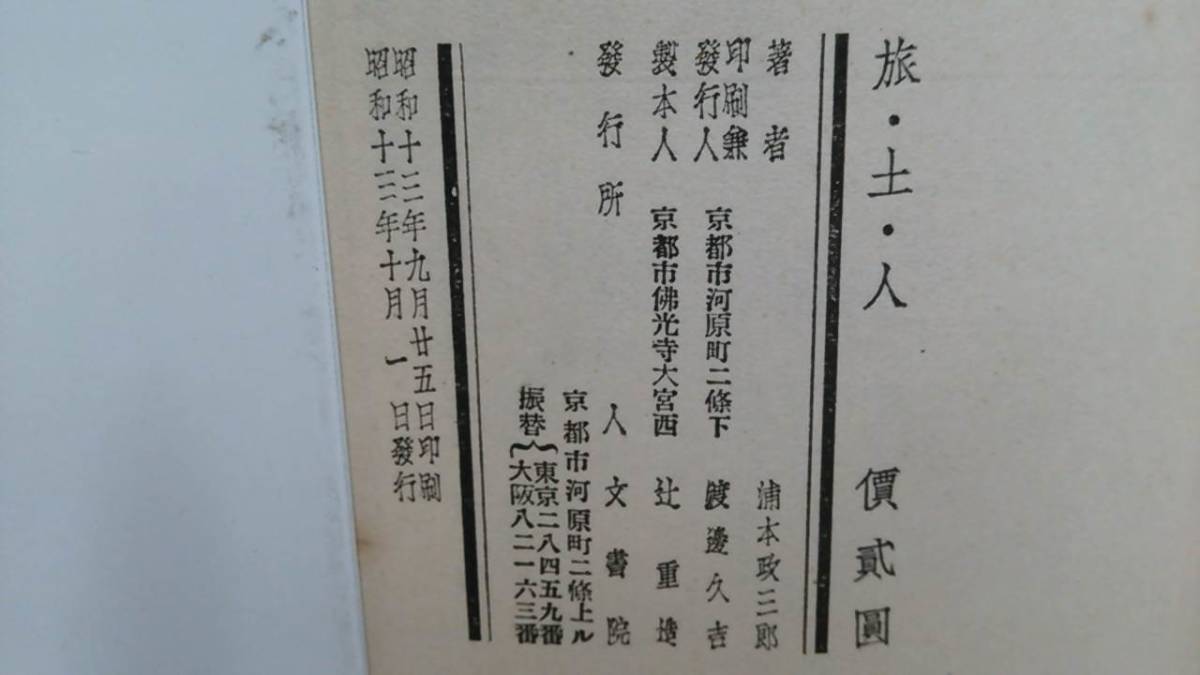 旅・土・人 價貳圓
著者 浦本政三郎
印刷兼發行人 京都市河原町二條下 渡邊久吉
製本人 京都市佛光寺大宮西 辻重造
發行所 人文書院
京都市河原町二條上ル
振替{東京二八四五九番
大阪八二一六三番
昭和十三年九月廿五日印刷
昭和十三年十月一日發行